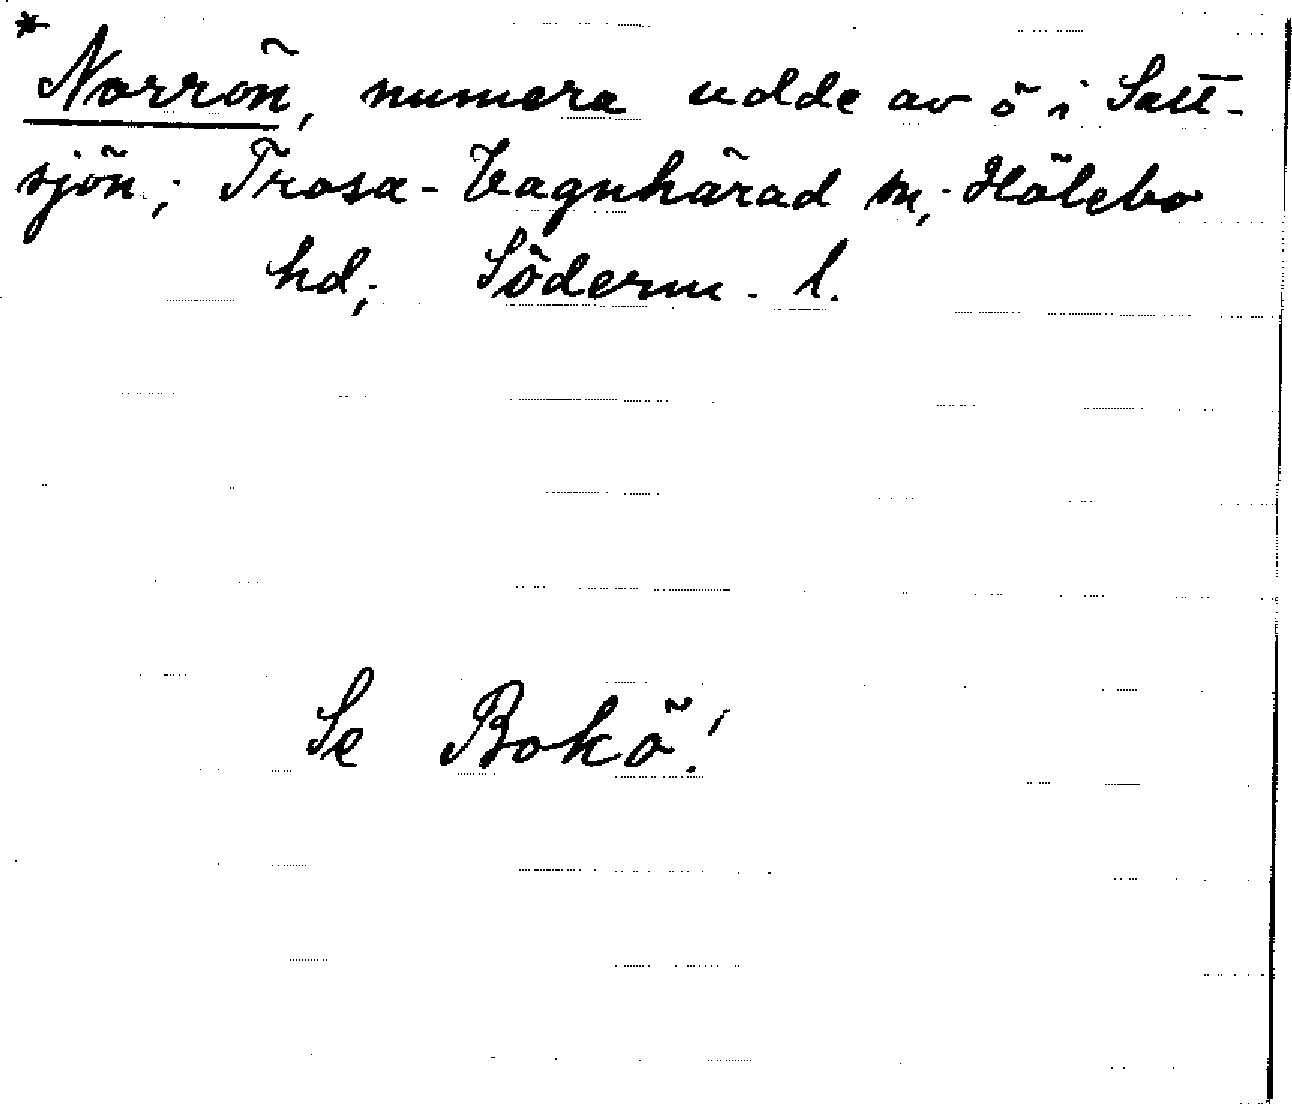 * Norrön, numera udde av ö i Salt-
sjön; Trosa-Vagnhärad sn; Hölebo
hd; Söderm. l.
Se Bokö!